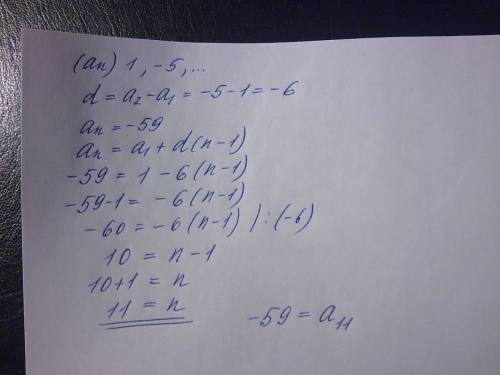 (an) 1, -5, ...
d = a₂ - a₁ = -5 - 1 = -6
an = -59
an = a₁ + d(n-1)
-59 = 1 - 6(n-1)
-59-1 = -6(n-1)
-60 = -6(n-1) | : (-6)
10 = n - 1
10+1 = n
11 = n
-59 = a₁₁